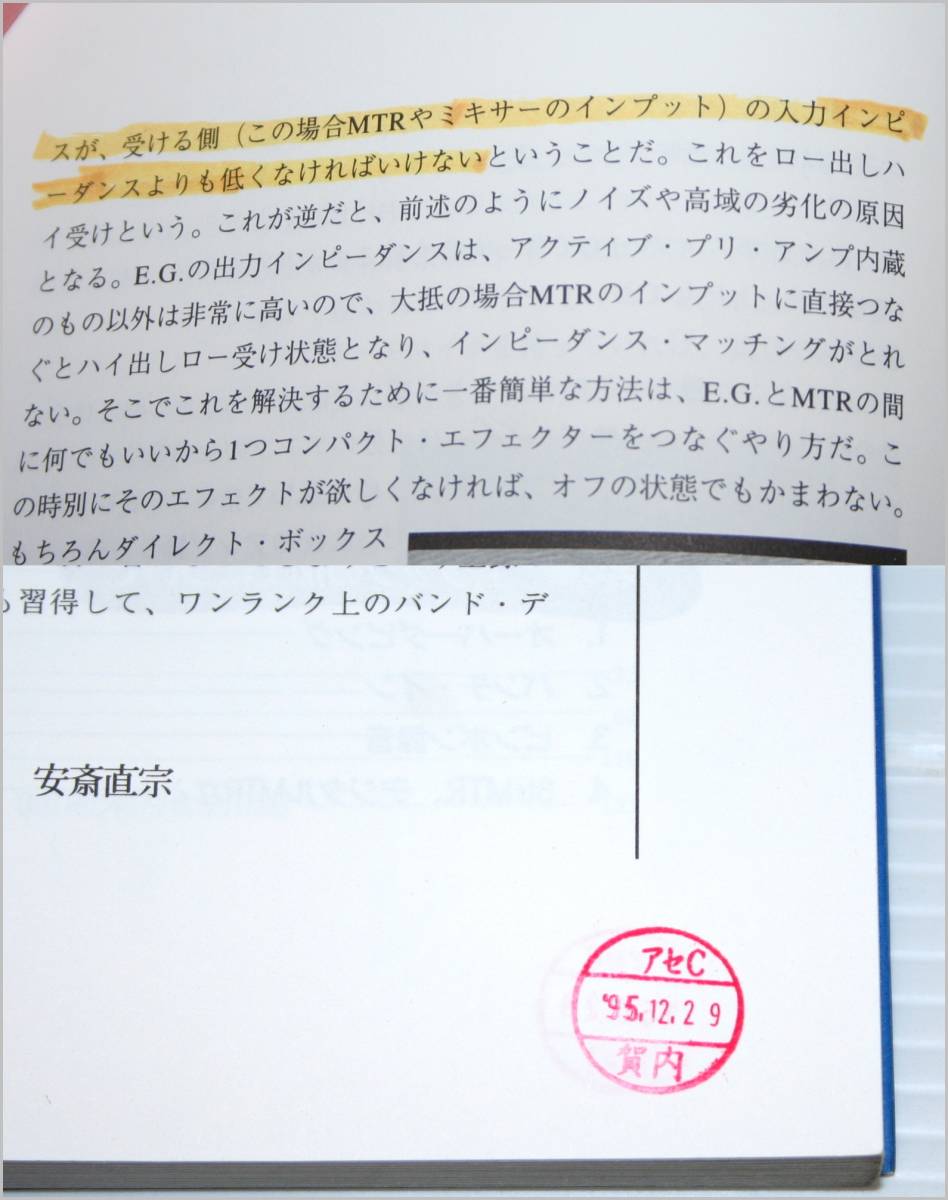 スが、受ける側（この場合MTRやミキサーのインプット）の入力インピ
ーダンスよりも低くなければいけないということだ。これをロー出しハ
イ受けという。これが逆だと、前述のようにノイズや高域の劣化の原因
となる。E.G.の出力インピーダンスは、アクティブ・プリ・アンプ内蔵
のもの以外は非常に高いので、大抵の場合MTRのインプットに直接つな
ぐとハイ出しロー受け状態となり、インピーダンス・マッチングがとれ
ない。そこでこれを解決するために一番簡単な方法は、E.G.とMTRの間
に何でもいいから1つコンパクト・エフェクターをつなぐやり方だ。こ
の時別にそのエフェクトが欲しくなければ、オフの状態でもかまわない。
もちろんダイレクト・ボックス
習得して、ワンランク上のバンド・デ
1. オーバーダビング
2. パンチ・イン
3. ピンポン録音
安斎直宗
アセC
'95.12.29
賀内